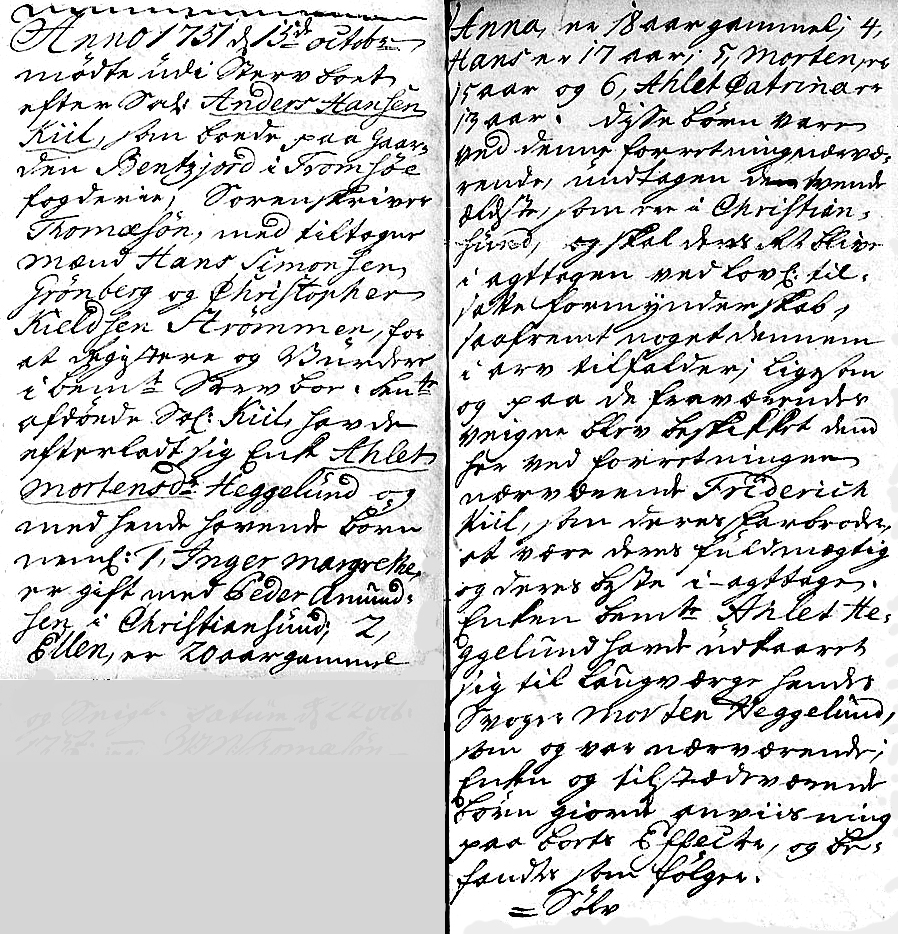 Anno 1751 d 15d octobr
mødte udi Stervboet
efter Sal: Anders Hansen
Kiil, som boede paa Gaar-
den Bentzjord i Tromsøe
fogderie, Sorenskriver
Tromæsøn, med tiltagne
mænd Hans Simonsen
Grønberg og Christopher
Kieldsen Strømmen, for
at Registere og Vurdere
i bemte Stervboe. bemte
afdøede Sal: Kiil, havde
efterladt sig Enke Ahlet
Mortensdr Heggelund og
med hende havende Børn
neml: 1, Inger Margrethe,
er gift med Peder Amund-
sen i Christiansund; 2,
Ellen, er 20 aar gammel
og Datum d
Anna, er 18 aar gammel; 4,
Hans er 17 aar; 5, Morten, er
15 aar og 6, Ahlet Catrina er
13 aar. disse børn vare
ved denne forretning nærvæ-
rende, undtagen de tvende
ældste, som ere i Christian-
sund, og skal deres Ret blive
i agttagen ved Lovl: til-
satte formynderskab,
saafremt noget dennem
i arv tilfalder; Ligesom
og paa de fraværendes
veigne blev beskikket dend
her ved forretningen
nærværende Friderich
Kiil, som deres farbroder,
at være deres fuldmægtig
og deres beste i-agttage.
Enken bemte Ahlet He-
ggelund havde udkaaret
sig til Laugværge hendes
Svoger Morten Heggelund,
som og var nærværende;
Enken og tilstædeværende
børn giorde anviisning
paa boets Effecter, og be-
fandtes som følger.
= Sølv